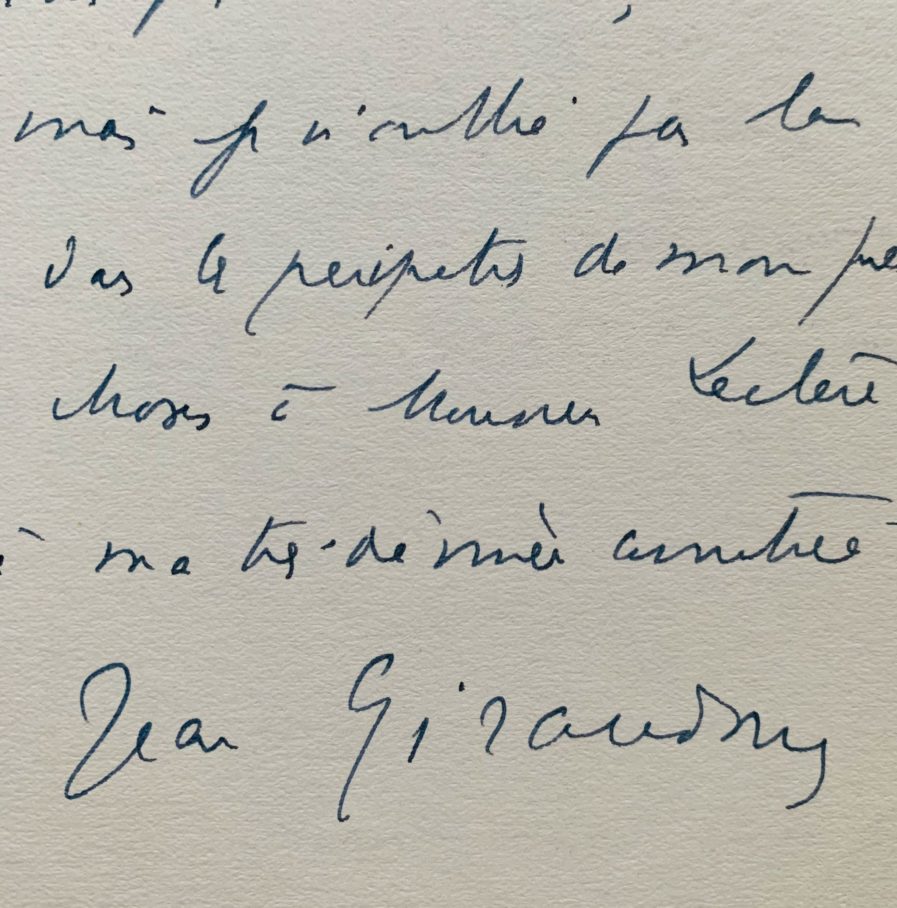 mais je n'oublie pas la
dans les péripéties de mon
choses à Monsieur Leclerc
à ma très dévouée amitié
Jean Giraudoux